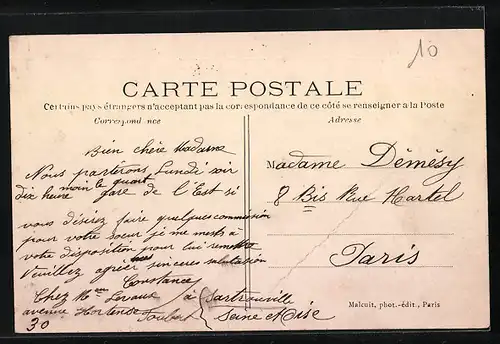 10
CARTE POSTALE
Certains pays étrangers n'acceptant pas la correspondance de ce côté se renseigner à la Poste
Correspondance
Adresse
Bien chère Madame
Nous parterons Lundi soir
dix heure moin le quart gare de l'Est si
vous désirez faire quelques commission
pour votre soeur je me mets à
votre disposition pour lui remettre
Veuillez agréer mes sinceres salutation
Constance
Chez Mme à Sartrouville
avenue Hortense Foubert Seine & Oise
30
Madame Démésy
8 Bis Rue Martel
Paris
Malcuit, phot.-édit., Paris